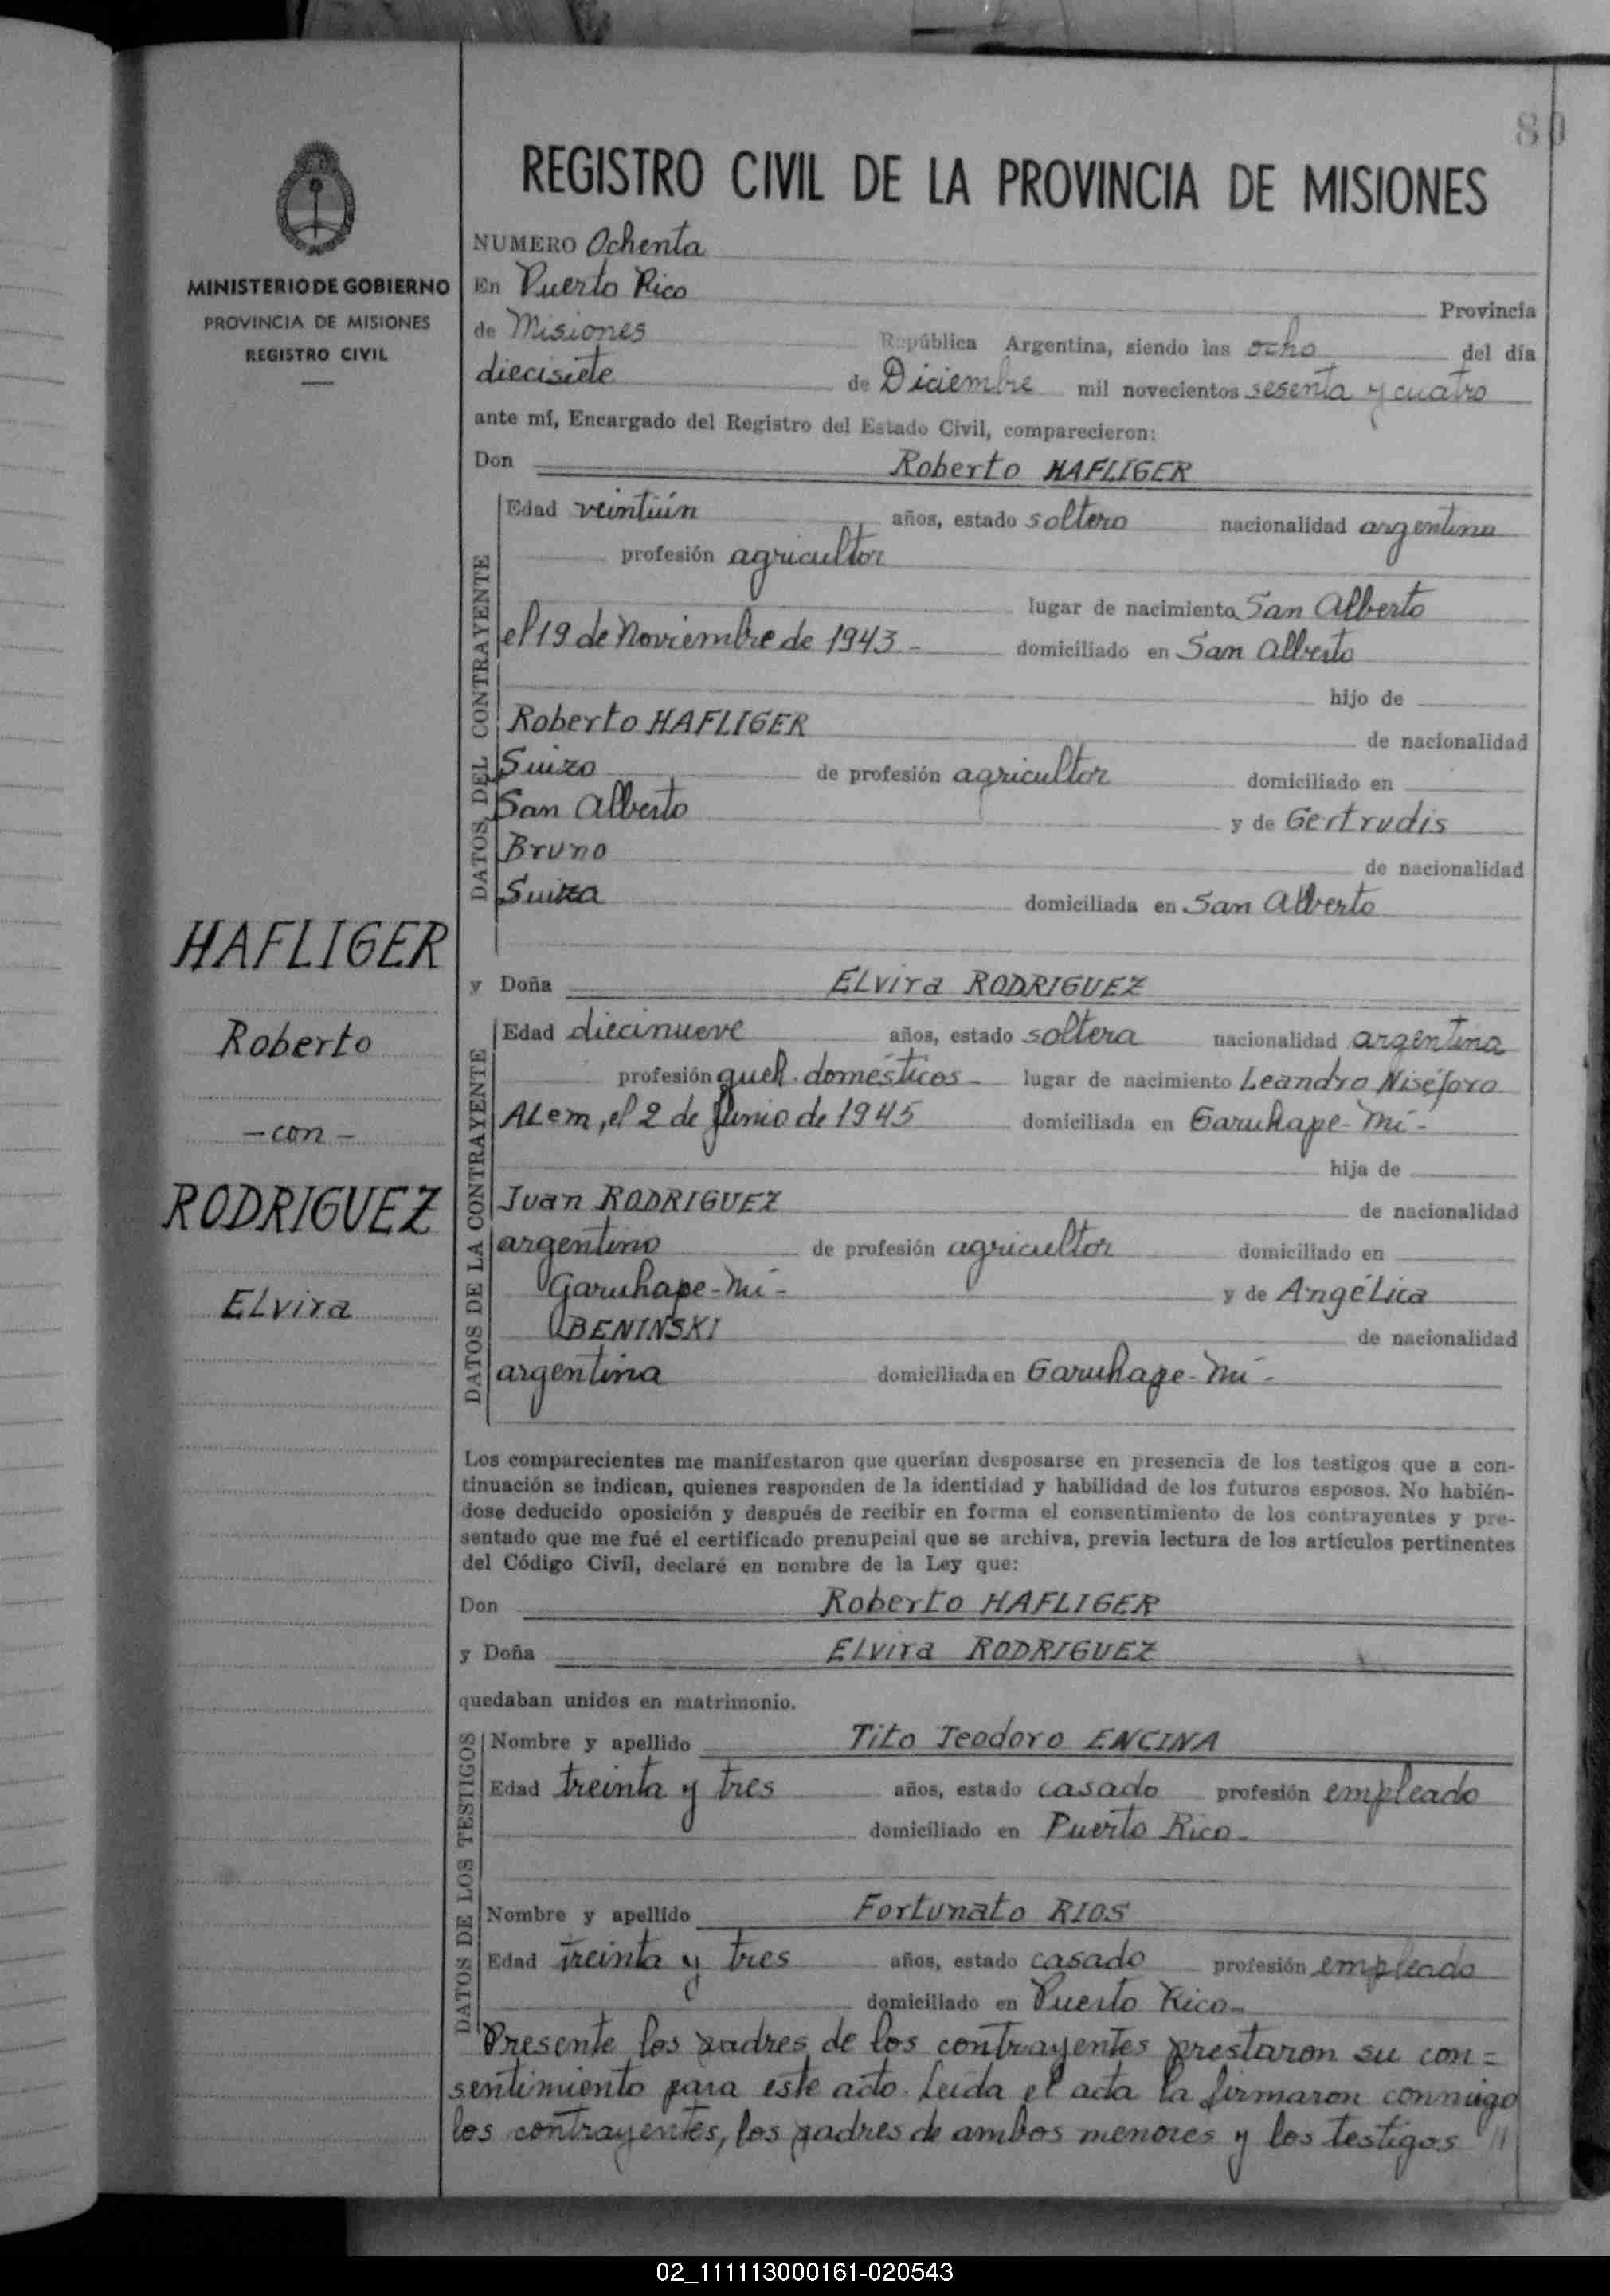 80
REGISTRO CIVIL DE LA PROVINCIA DE MISIONES
MINISTERIO DE GOBIERNO
PROVINCIA DE MISIONES
REGISTRO CIVIL
HAFLIGER
Roberto
- con -
RODRIGUEZ
Elvira
NUMERO Ochenta
En Puerto Rico Provincia
de Misiones República Argentina, siendo las ocho del día
diecisiete de Diciembre mil novecientos sesenta y cuatro
ante mí, Encargado del Registro del Estado Civil, comparecieron:
Don Roberto HAFLIGER
DATOS DEL CONTRAYENTE
Edad veintiún años, estado soltero nacionalidad argentina
profesión agricultor
lugar de nacimiento San Alberto
el 19 de Noviembre de 1943.- domiciliado en San Alberto
hijo de
Roberto HAFLIGER de nacionalidad
Suizo de profesión agricultor domiciliado en
San Alberto y de Gertrudis
Bruno de nacionalidad
Suiza domiciliada en San Alberto
y Doña Elvira RODRIGUEZ
DATOS DE LA CONTRAYENTE
Edad diecinueve años, estado soltera nacionalidad argentina
profesión queh. domésticos lugar de nacimiento Leandro Niséforo
Alem, el 2 de Junio de 1945 domiciliada en Garuhape-Mí-
hija de
Juan RODRIGUEZ de nacionalidad
argentino de profesión agricultor domiciliado en
Garuhape-Mí- y de Angélica
BENINSKI de nacionalidad
argentina domiciliada en Garuhape-Mí-
Los comparecientes me manifestaron que querían desposarse en presencia de los testigos que a con-
tinuación se indican, quienes responden de la identidad y habilidad de los futuros esposos. No habién-
dose deducido oposición y después de recibir en forma el consentimiento de los contrayentes y pre-
sentado que me fué el certificado prenupcial que se archiva, previa lectura de los artículos pertinentes
del Código Civil, declaré en nombre de la Ley que:
Don Roberto HAFLIGER
y Doña Elvira RODRIGUEZ
quedaban unidos en matrimonio.
DATOS DE LOS TESTIGOS
Nombre y apellido Tito Teodoro ENCINA
Edad treinta y tres años, estado casado profesión empleado
domiciliado en Puerto Rico-
Nombre y apellido Fortunato RIOS
Edad treinta y tres años, estado casado profesión empleado
domiciliado en Puerto Rico-
Presente los padres de los contrayentes prestaron su con=
sentimiento para este acto. Leída el acta la firmaron conmigo
los contrayentes, los padres de ambos menores y los testigos //
02_111113000161-020543